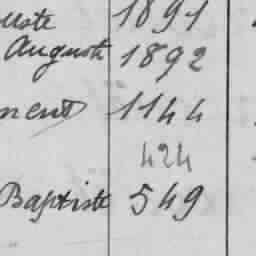 uste 1891
August 1892
ment 1144
424
Baptiste 549